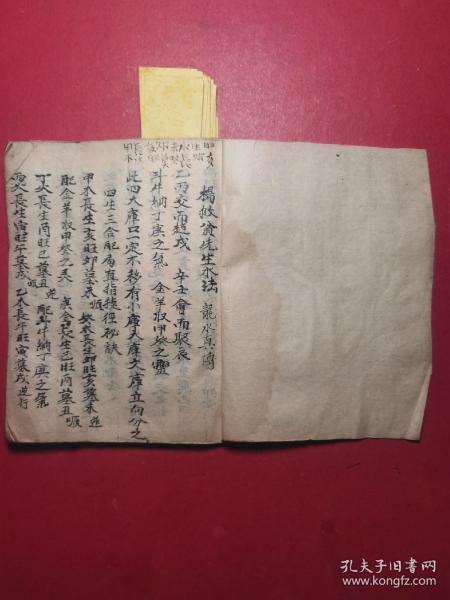 楊救貧先生水法 龍水真傳
乙丙交而趨戌 辛壬會而聚辰
斗牛納丁庚之氣 金羊收甲癸之靈
此四大庫口一定不移有小庫大庫文庫立向分之
四生三合配局真指後徑秘訣
甲木長生亥旺卯墓未順 癸水長生卯旺亥墓未逆
配金羊收甲癸之灵 庚金長生巳旺酉墓丑順
丁火長生酉旺巳墓丑逆 配斗牛納丁庚之氣
丙火長生寅旺午墓戌順 乙木長午旺寅墓戌逆行
孔夫子旧书网
www.kongfz.com